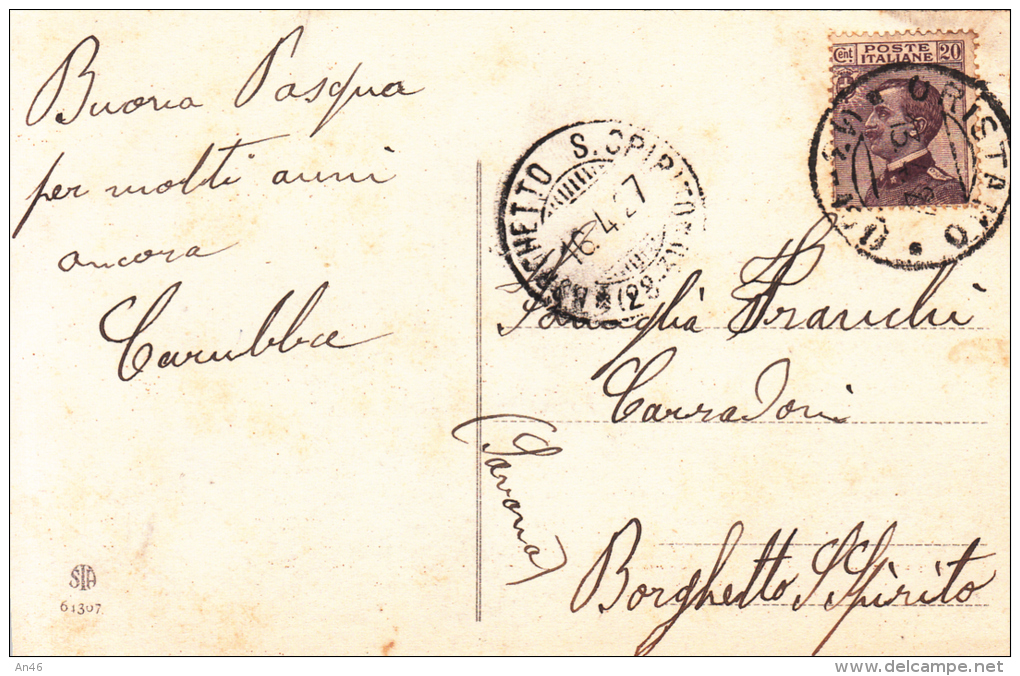 Buona Pasqua
per molti anni
ancora
Carubbie
Cent. POSTE ITALIANE 20
ORISTANO
BORGHETTO S. SPIRITO
16.4.27
Famiglia Franchi
Carradori
(Savona)
Borghetto S Spirito
STA
61307
An46
delcampe.net